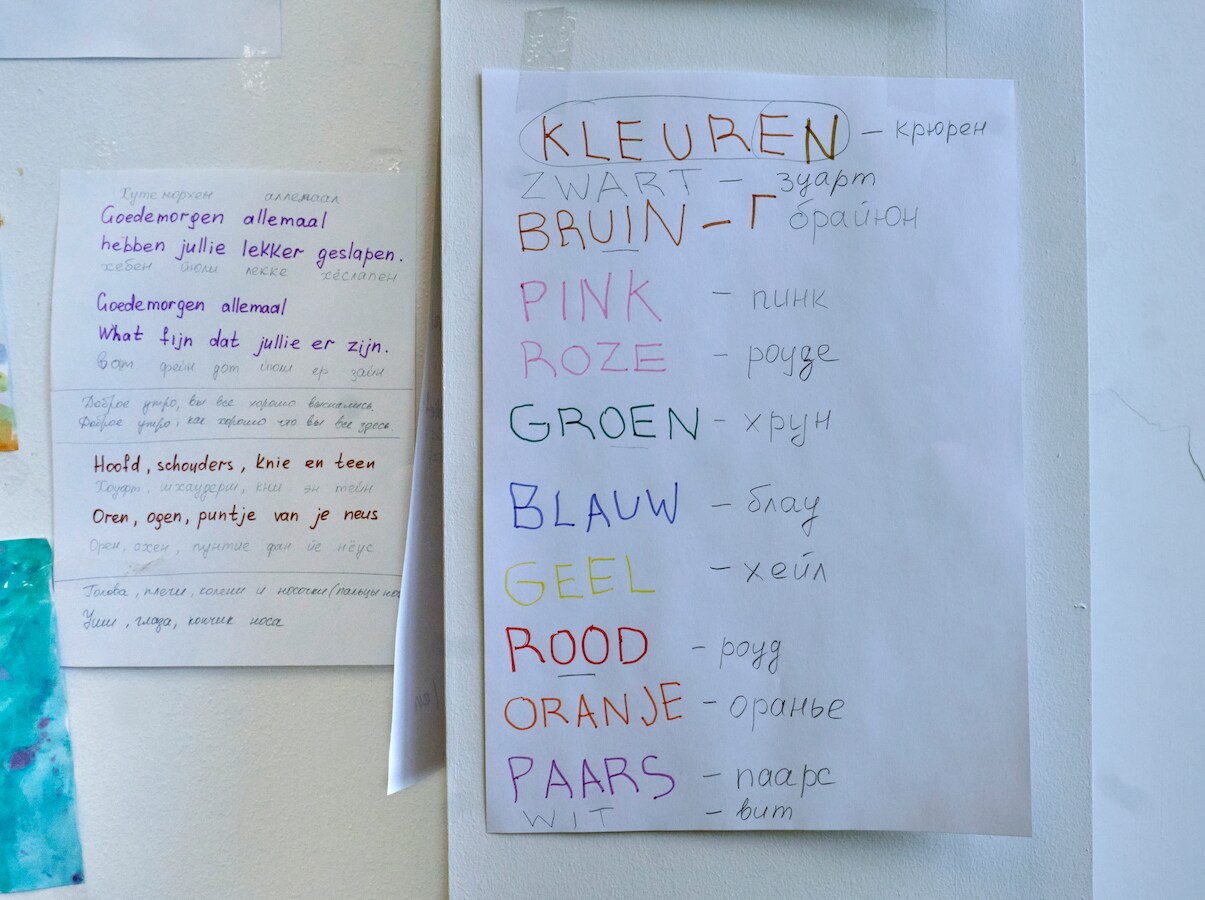 Хуте морхен аллемаал
Goedemorgen allemaal
hebben jullie lekker geslapen.
хебен июли лекке хёслапен
Goedemorgen allemaal
What fijn dat jullie er zijn.
ват фейн дат июли ер зайн
Доброе утро, вы все хорошо выспались.
Доброе утро, как хорошо что вы все здесь
Hoofd, schouders, knie en teen
Хоуфт, шхаудерш, кни эн тейн
Oren, ogen, puntje van je neus
Орен, охен, пунтие фан йе нёус
Голова, плечи, колени и носочки (пальцы
Уши, глаза, кончик носа
KLEUREN – крюрен
ZWART – зуарт
BRUIN – Г брайюн
PINK – пинк
ROZE – роузе
GROEN – хрун
BLAUW – блау
GEEL – хейл
ROOD – роуд
ORANJE – оранье
PAARS – паарс
WIT – вит